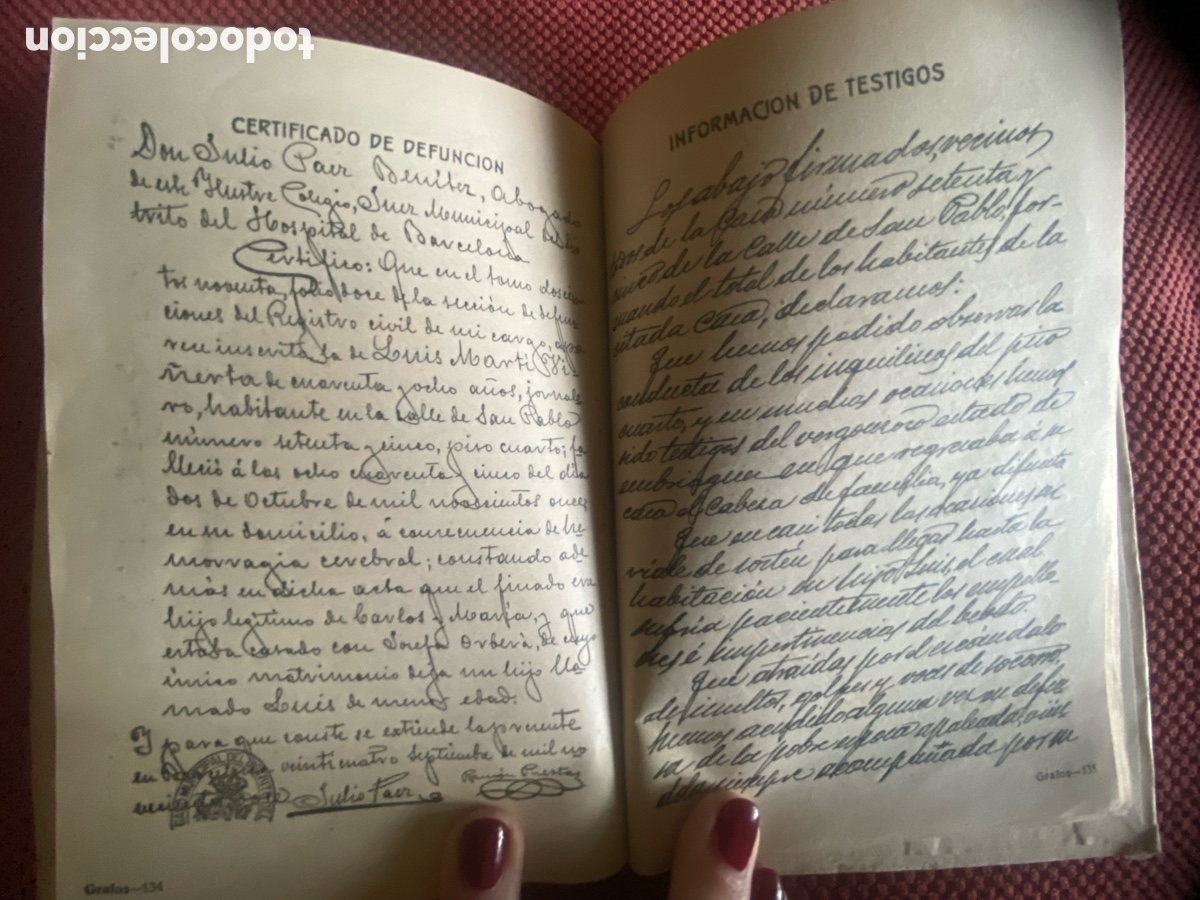 todocoleccion
CERTIFICADO DE DEFUNCION
Don Julio Paez Benitez, Abogado
de este Ilustre Colegio, Juez Municipal del dis
trito del Hospital de Barcelona
Certifico: Que en el tomo doscien
tos noventa, folio doce de la sección de defun
ciones del Registro civil de mi cargo, apa
rece inscrita la de Luis Marti Vi
ñerta de cuarenta y ocho años, jornale
ro, habitante en la calle de San Pablo
número setenta y cinco, piso cuarto; fa
lleció á las ocho cuarenta y cinco del día
dos de Octubre de mil novecientos once
en su domicilio, á consecuencia de he
morragia cerebral; constando ade
más en dicha acta que el finado era
hijo legítimo de Carlos y María, y que
estaba casado con Josefa Orberá, de cuyo
único matrimonio deja un hijo lla
mado Luis de menor edad.
Y para que conste se extiende la presente
en veinticuatro Septiembre de mil no
Julio Paez
Ramón Puertas
Grafos—134
INFORMACION DE TESTIGOS
Los abajo firmados, vecinos
de la casa número setenta y
cinco de la Calle de San Pablo, for-
mando el total de los habitantes de la
citada casa, declaramos:
Que hemos podido observar la
conducta de los inquilinos del piso
cuarto, y en muchas ocasiones hemos
sido testigos del vergonzoso estado de
embriaguez en que regresaba á su
casa el Cabeza de familia, ya difunto
Que en casi todas las ocasiones se
de sostén para llegar hasta la
habitación su hijo Luis, el cual
sufria pacientemente los empello
nes é impertinencias del beodo.
Que atraídos por el escándalo
de insultos, golpes y voces de socorro,
hemos acudido alguna vez en defen
sa de la pobre esposa apaleada,
siempre acompañada por su
Grafos—135